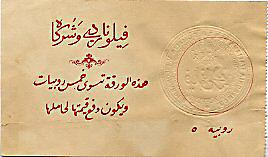 فيلوناردي وشركاه
هذه الورقة تسوى خمس روبيات
ويكون دفع قيمتها لحاملها
روبيه ٥